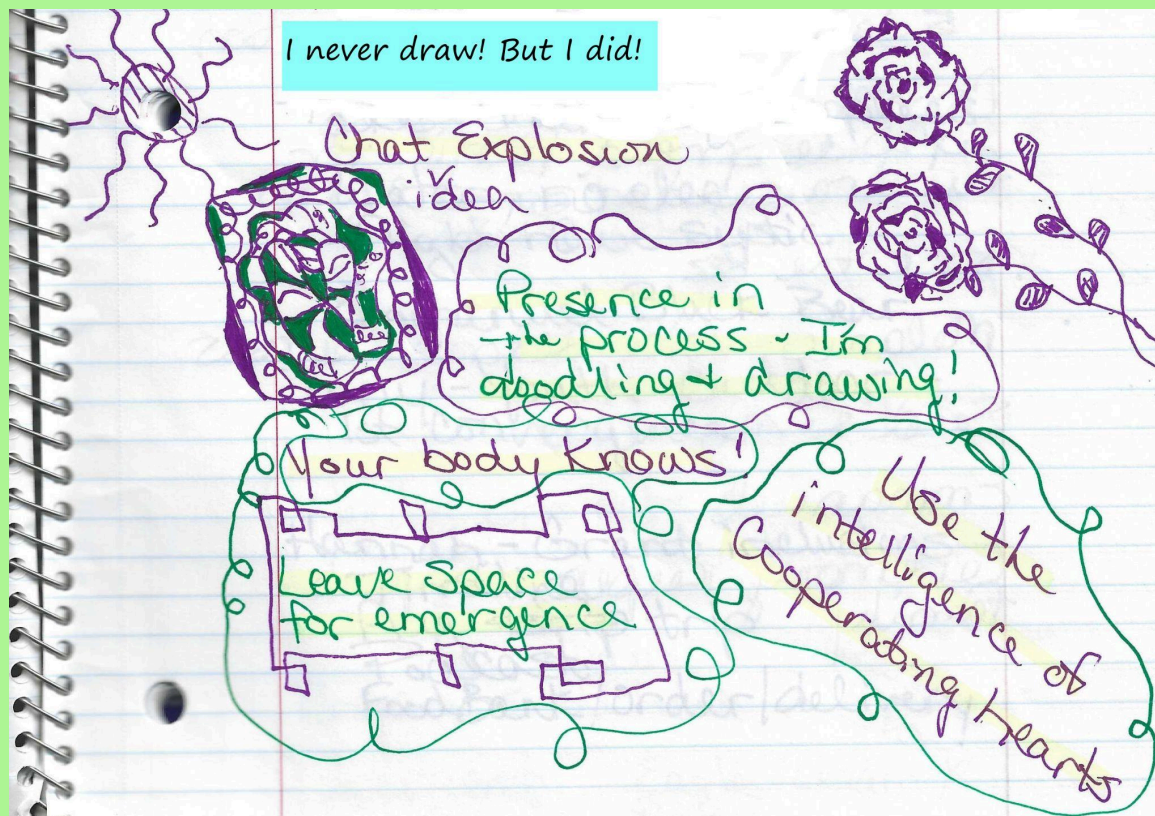 I never draw! But I did!
Chat Explosion
idea
Presence in
the process - I'm
doodling + drawing!
Your body Knows!
Leave Space
for emergence
Use the
intelligence of
Cooperating hearts